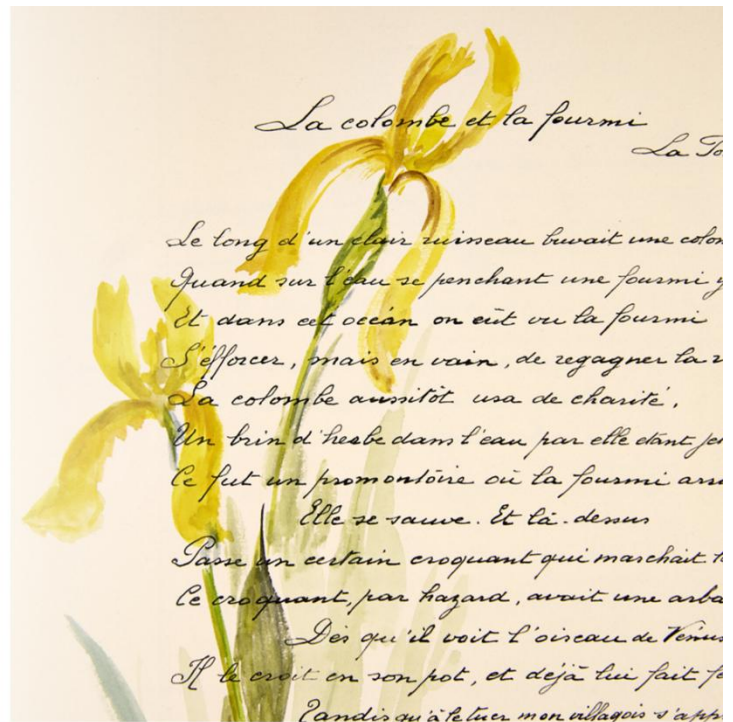 La colombe et la fourmi
La
Le long d'un clair ruisseau buvait une
Quand sur l'eau se penchant une fourmi
Et dans cet océan on eût vu la fourmi
S'éfforcer, mais en vain, de regagner la
La colombe aussitôt usa de charité,
Un brin d'herbe dans l'eau par elle étant
Ce fut un promontoire où la fourmi
Elle se sauve. Et là-dessus
Passe un certain croquant qui marchait
Ce croquant, par hazard, avait une
Dès qu'il voit l'oiseau de Vénus
Il le croit en son pot, et déjà lui fait
Tandis qu'à le tuer mon villageois